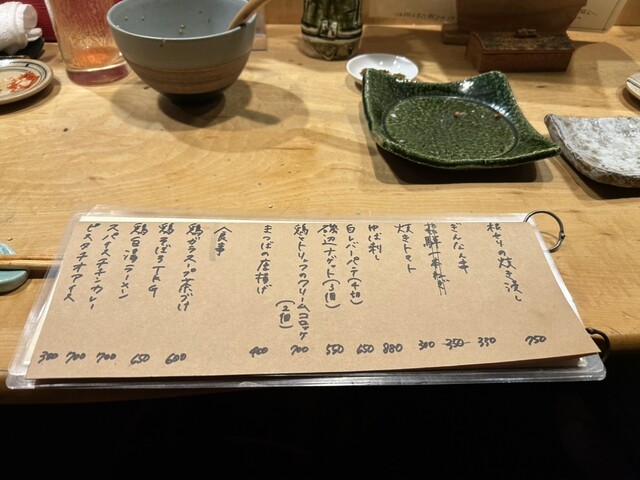 根せりの炊き浸し 750
ぎんなん串 350
350
焼きトマト 300
ゆば刺し 880
白レバーパテ(4切) 650
磯辺ナゲット(3個) 550
鶏とトリュフのクリームコロッケ(2個) 700
まつばの唐揚げ 400
食事
鶏ガラスープ茶づけ 600
鶏そぼろTKG 650
鶏白湯ラーメン 700
スパイスチキンカレー 700
ピスタチオアイス 300